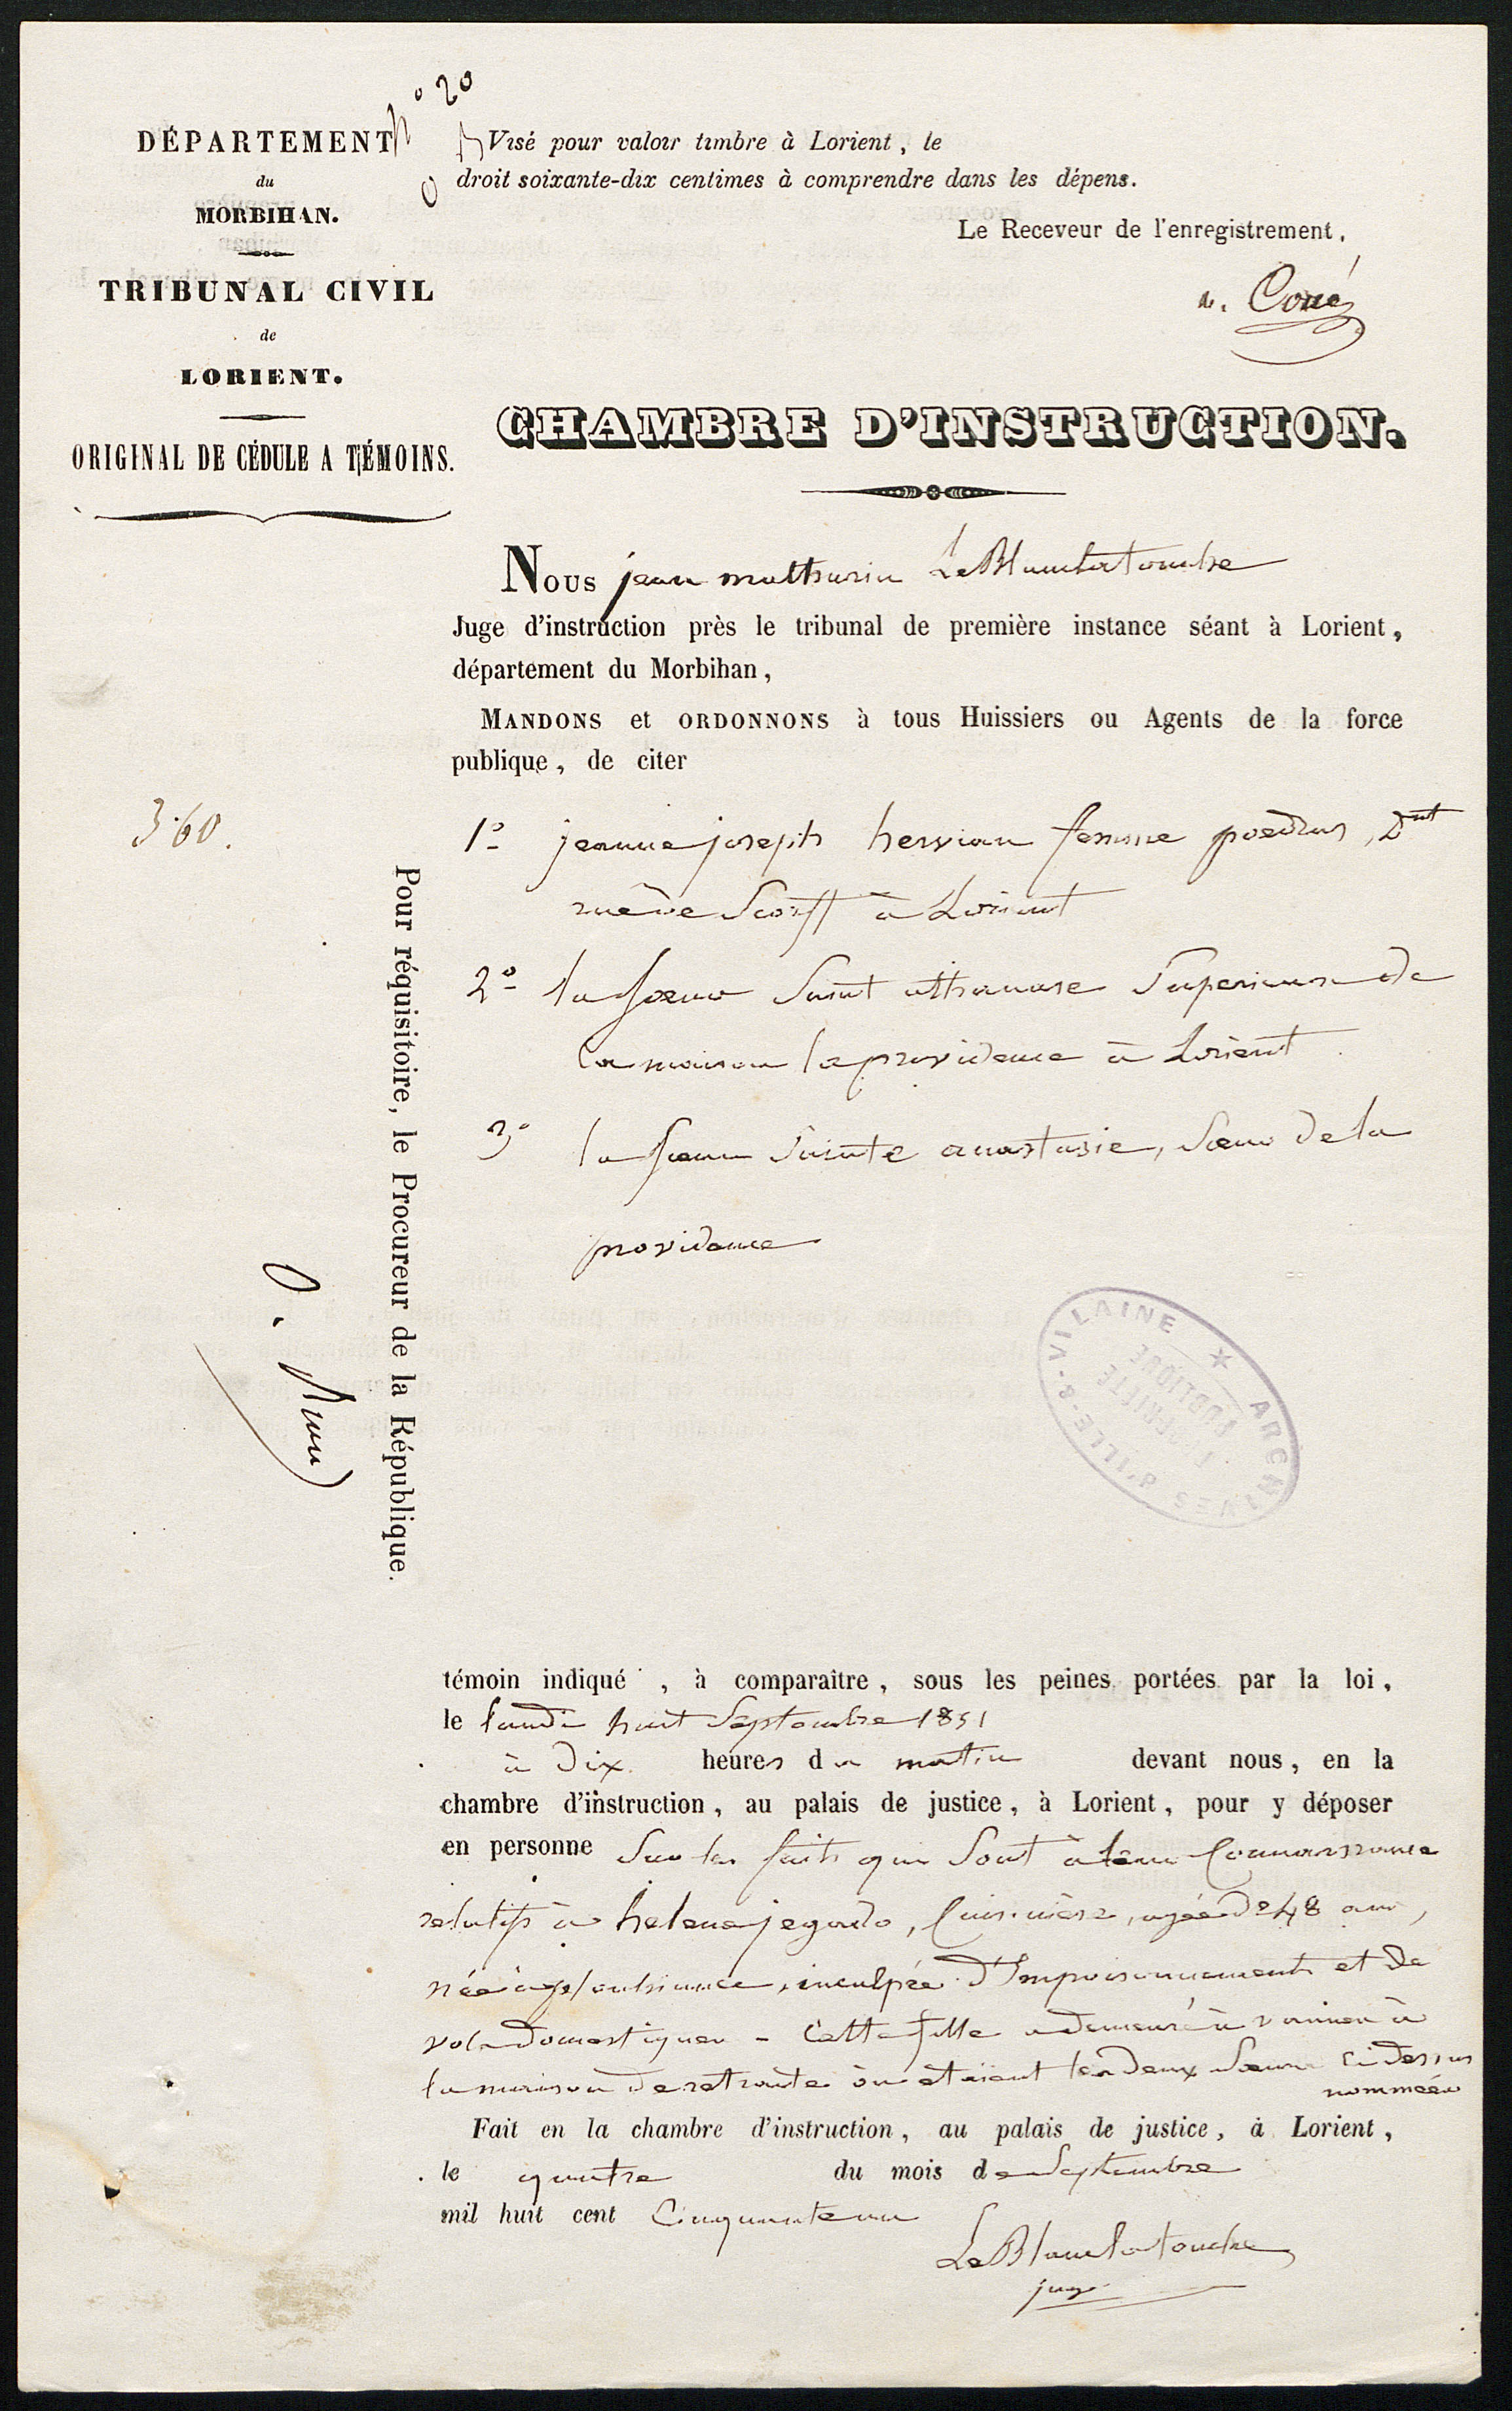 n° 20
DÉPARTEMENT
du
MORBIHAN.
TRIBUNAL CIVIL
de
LORIENT.
ORIGINAL DE CÉDULE A TÉMOINS.
Visé pour valoir timbre à Lorient, le
droit soixante-dix centimes à comprendre dans les dépens.
Le Receveur de l'enregistrement,
Coué
CHAMBRE D'INSTRUCTION.
Nous jean mathurin Le Blanc latouche
Juge d'instruction près le tribunal de première instance séant à Lorient,
département du Morbihan,
MANDONS et ORDONNONS à tous Huissiers ou Agents de la force
publique, de citer
3.60.
1° jeanne joseph hervian femme , Dnt
rue de Scorff à Lorient
2° la soeur Saint athanase Superieure de
la maison la providence à Lorient
3° la soeur Sainte anastasie, Soeur de la
providence
Pour réquisitoire, le Procureur de la République.
ARCHIVES D'ILLE-&-VILAINE
PROPRIÉTÉ
PUBLIQUE
témoin indiqué , à comparaître, sous les peines portées par la loi,
le lundi huit Septembre 1851
à dix heures du matin devant nous, en la
chambre d'instruction, au palais de justice, à Lorient, pour y déposer
en personne Sur les faits qui Sont à leur Connaissance
relatifs à helene jegado, Cuisinière, agée de 48 ans,
née à plouhinnec, inculpée d'Empoisonnements et de
vols domestiques - Cette fille a demeuré à vannes à
la maison de retraite où étaient les deux Soeurs ci dessus
nommées
Fait en la chambre d'instruction, au palais de justice, à Lorient,
le quatre du mois de Septembre
mil huit cent Cinquante un
Le Blanc latouche
juge